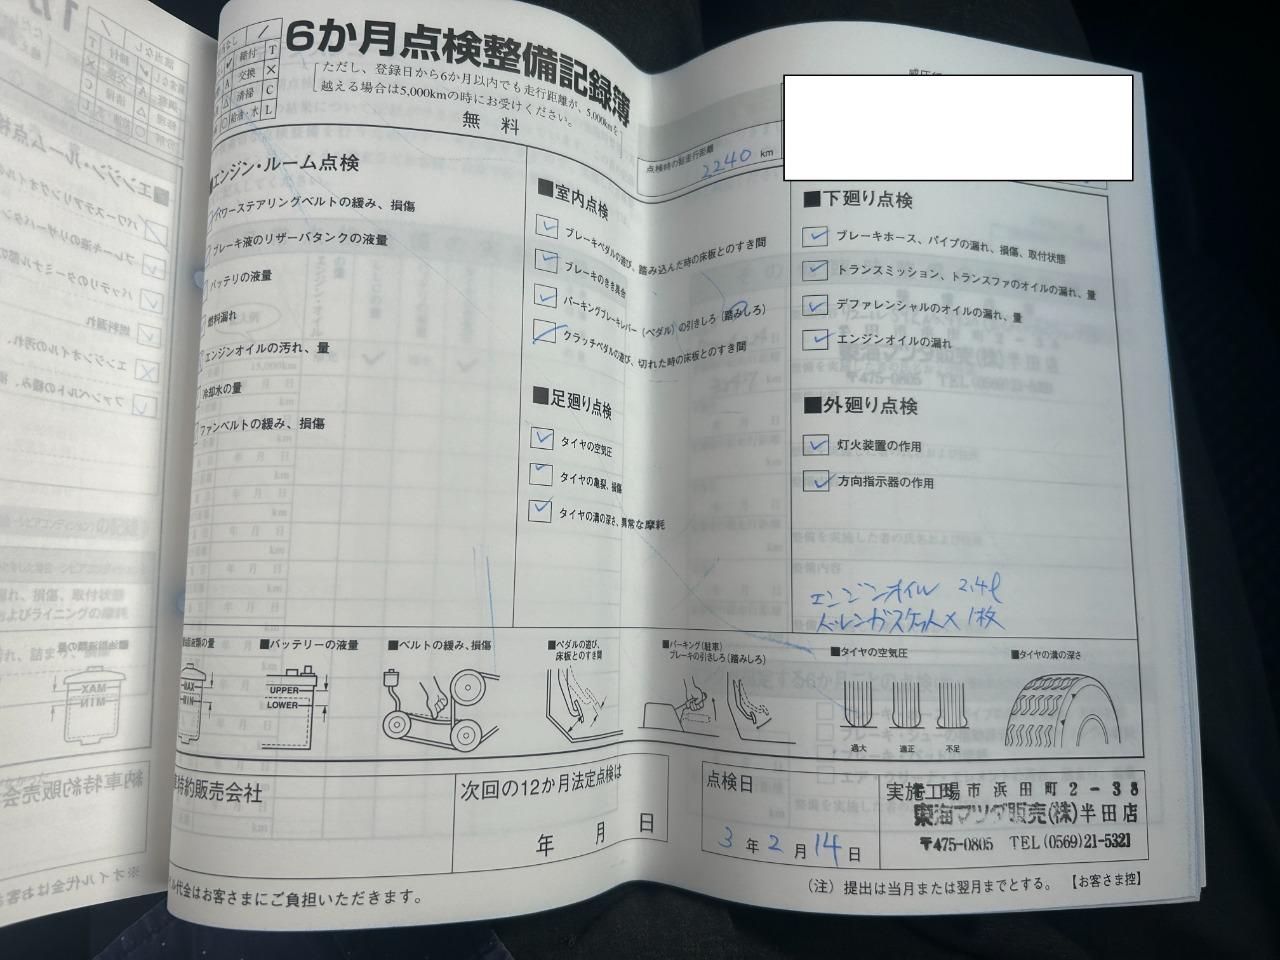 6か月点検整備記録簿
ただし、登録日から6か月以内でも走行距離が、5,000kmを
越える場合は5,000kmの時にお受けください。
無 料
締付 T
A 交換 ×
△ 清掃 C
○ 給油・水 L
点検時の総走行距離 2240 km
エンジン・ルーム点検
パワーステアリングベルトの緩み、損傷
ブレーキ液のリザーバタンクの液量
バッテリの液量
燃料漏れ
エンジンオイルの汚れ、量
冷却水の量
ファンベルトの緩み、損傷
■室内点検
ブレーキペダルの遊び、踏み込んだ時の床板とのすき間
ブレーキのきき具合
パーキングブレーキレバー(ペダル)の引きしろ(踏みしろ)
クラッチペダルの遊び、切れた時の床板とのすき間
■足廻り点検
タイヤの空気圧
タイヤの亀裂、損傷
タイヤの溝の深さ、異常な摩耗
■下廻り点検
ブレーキホース、パイプの漏れ、損傷、取付状態
トランスミッション、トランスファのオイルの漏れ、量
デファレンシャルのオイルの漏れ、量
エンジンオイルの漏れ
■外廻り点検
灯火装置の作用
方向指示器の作用
エンジンオイル 2.4ℓ
ドレンガスケット×1枚
の量
MAX
MIN
■バッテリーの液量
UPPER
LOWER
■ベルトの緩み、損傷
■ペダルの遊び、
床板とのすき間
■パーキング(駐車)
ブレーキの引きしろ(踏みしろ)
■タイヤの空気圧
過大 適正 不足
■タイヤの溝の深さ
特約販売会社
次回の12か月法定点検は
年 月 日
点検日
3年2月14日
実施工場
市浜田町2-33
東海マツダ販売(株)半田店
〒475-0805 TEL(0569)21-5321
オイル代金はお客さまにご負担いただきます。
(注)提出は当月または翌月までとする。【お客さま控】